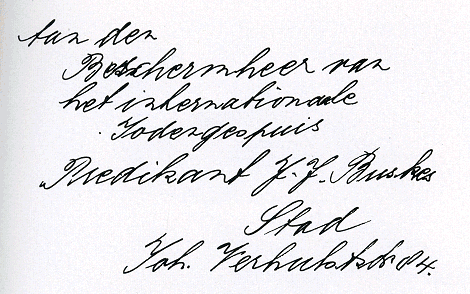 Aan den
Beschermheer van
het internationale
Jodengespuis
Predikant J. J. Buskes
Stad
Joh. Verhulststr 84.